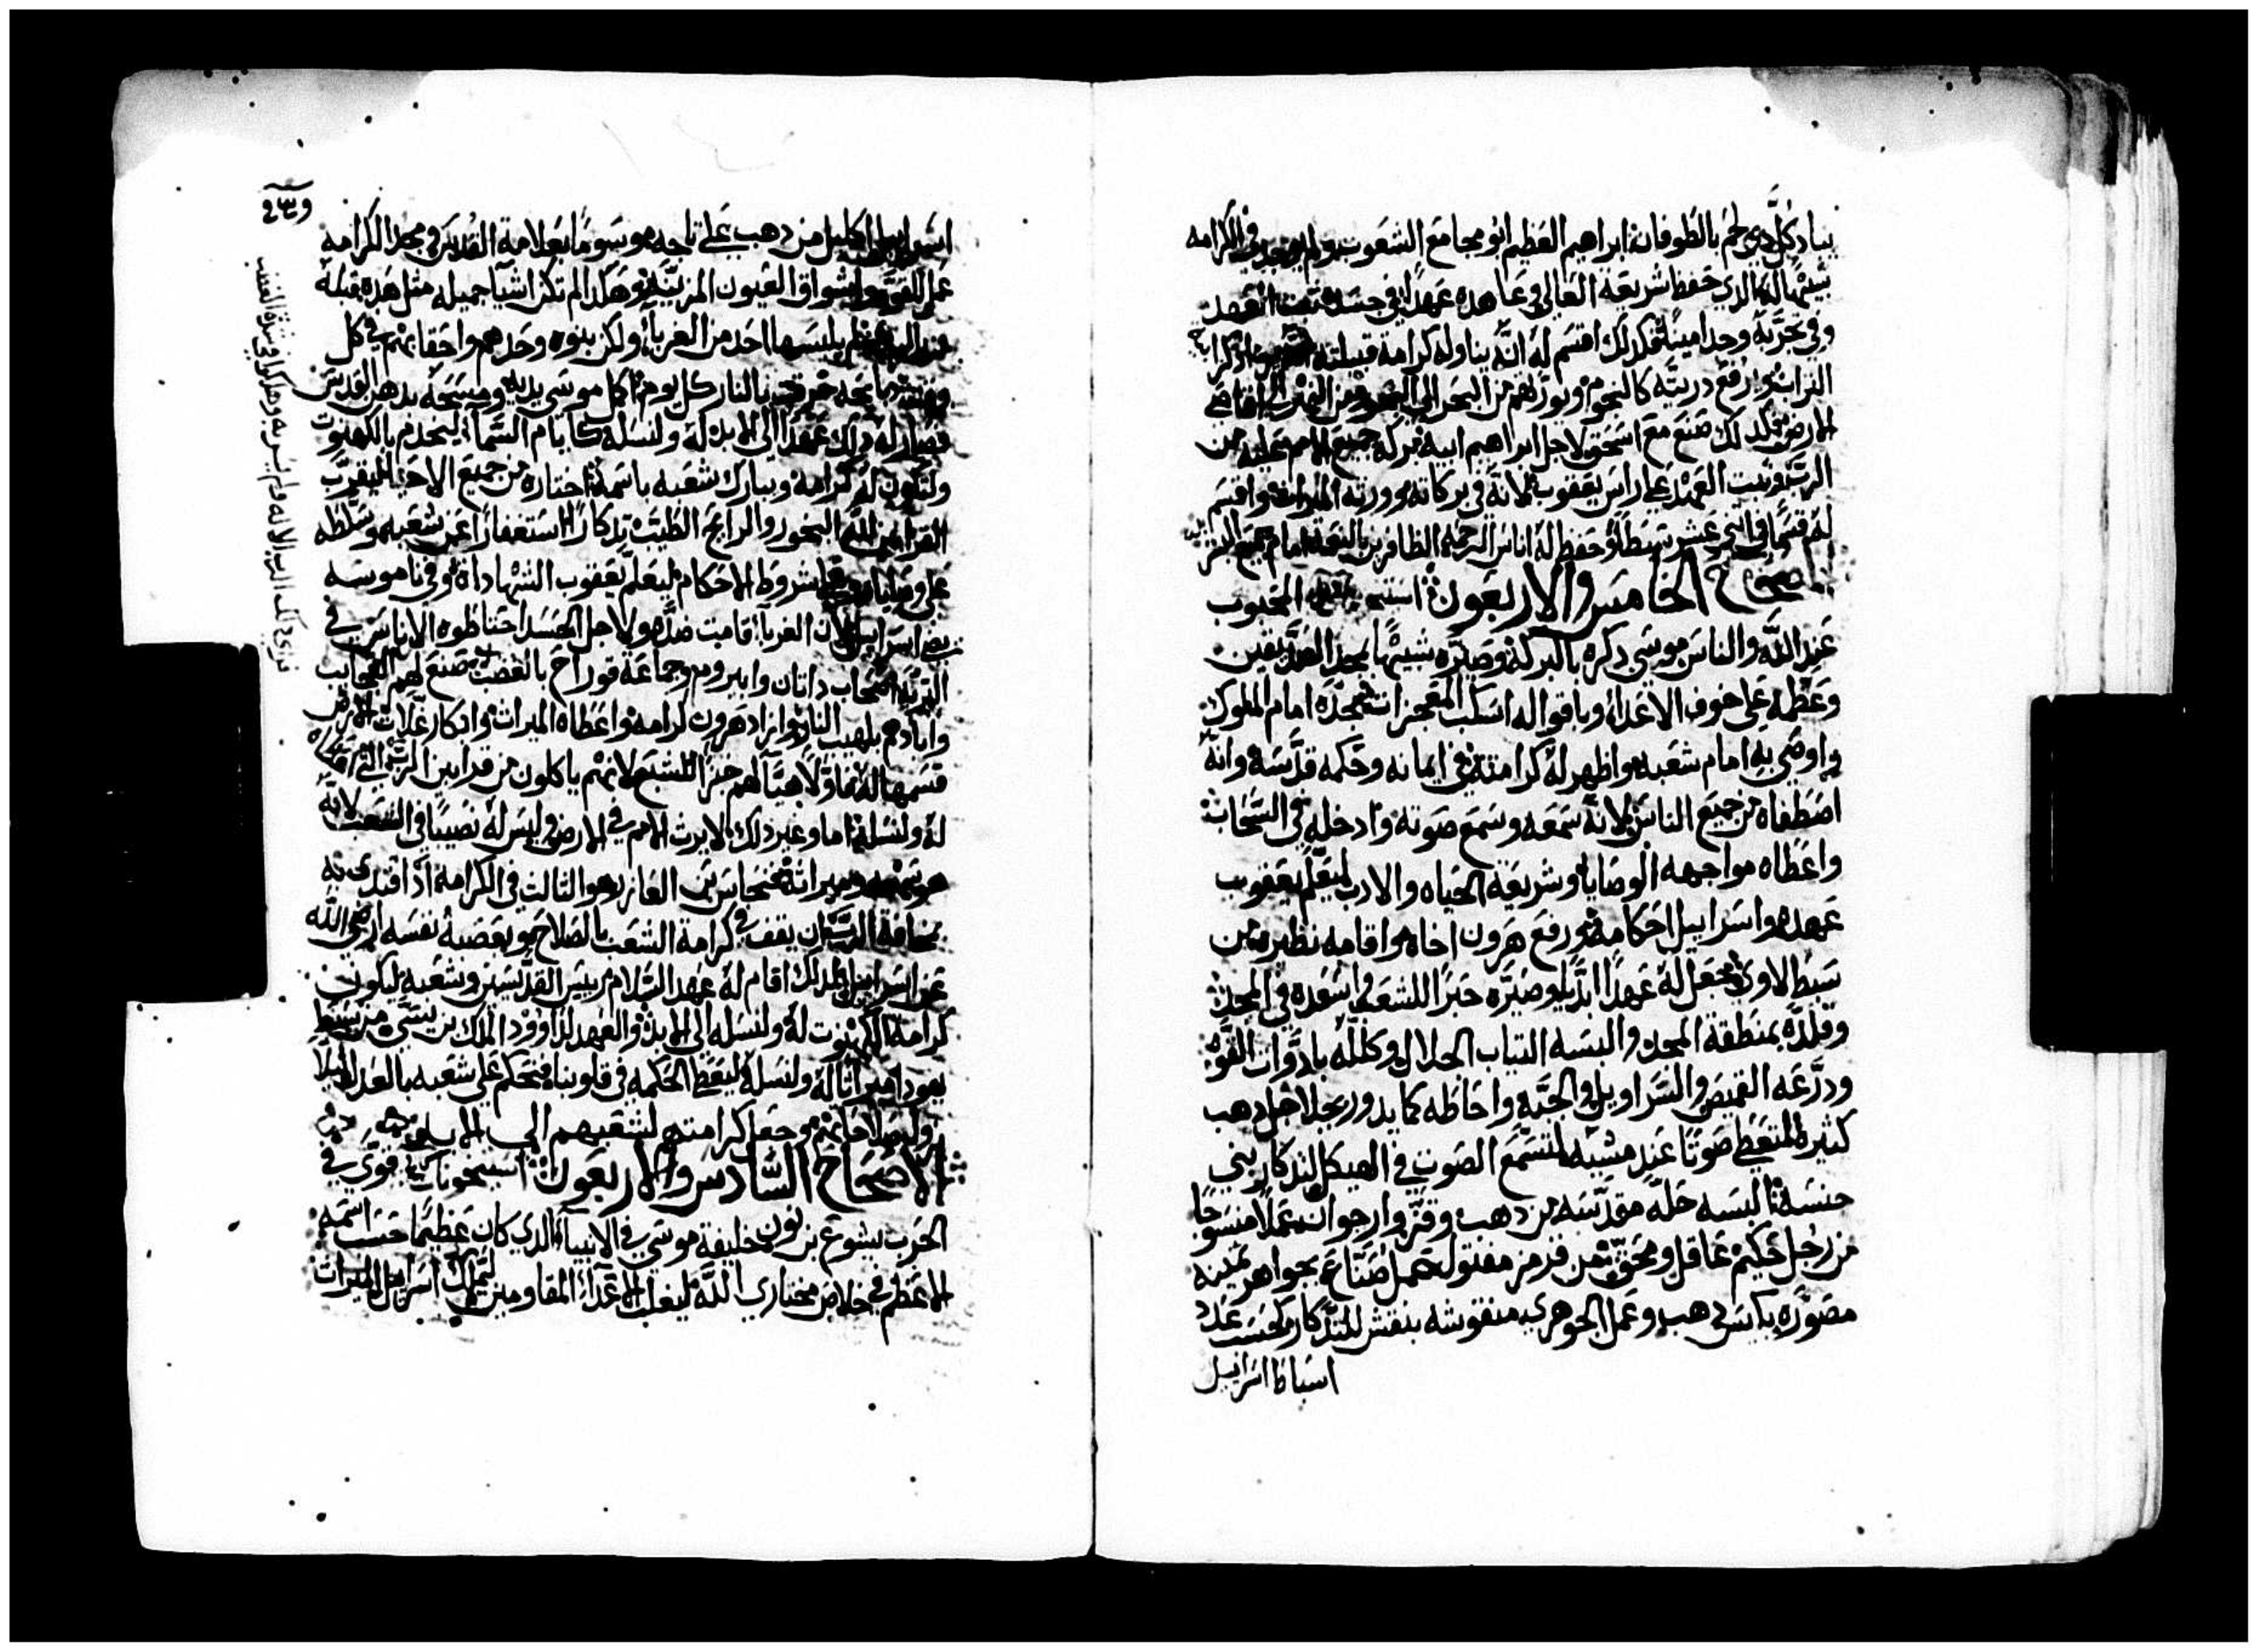 يباد كل دي لحم بالطوفان ابراهيم العظيم ابو مجامع الشعوب ولم يوجد في الكرامه
شبيهاله الدي حفظ شريعة العالي في عاهده عهدا في جسده تبت العهد
وفي تجربة وجد امينا فلدلك اقسم له انه يناوله كرامة قبيلته
التراب ويرفع دريته كالنجوم ويورثهم من البحر الي البحر ومن النهر الي اقاصي
الارض وكدلك صنع مع اسحق لاجل ابراهيم ابيه بركة جميع الامم عليه من
الرب وتبت العهد علي راس يعقوب لانه في بركاته وورته الميرات واقسم
له قسما في اتني عشر سبطا وحفظ له اناس الرحمه الظافرين بالنعمه امام جميع البشر
اصحاح الخامس والاربعون المحبوب
عند الله والناس موسي دكره بالبركة وصيره شبيها بمجد القديسين
وعظمه علي خوف الاعداء وباقواله اسكت المعجزات مجده امام الملوك
واوصي به امام شعبه واظهر له كرامته في ايمانه وحكمه قدسه وانه
اصطفاه من جميع الناس لانه سمعه وسمع صوته وادخله في السحاب
واعطاه مواجهه الوصايا وشريعة الحياه والادب ليعلم يعقوب
عهده واسراييل احكامه ورفع هرون اخاه واقامه نظيره من
سبط لاوي وجعل له عهدا ابديا وصيره حبرا للشعب واسعده في المجد
وقلده بمنطقة المجد والبسه التياب الجلال وكلله بادوات القوه
ودرعه القميص والسراويل والجبه واحاطه كما يدور بجلاجل دهب
كثيره لتعطي صوتا عند مشيه لتسمع الصوت في الهيكل لتدكار بني
جنسه البسه حلة مقدسه من دهب وقز وارجوان عملا منسوجا
من رجل حكيم عاقل ومحق من قرمز مفتول عمل صناع بجواهر تمينه
مصوره بكبس دهب وعمل الجوهري منقوشه بنقش للتدكار كحسب عدد
اسباط اسراييل
اسراييل اكليل من دهب علي تاجه موسوما بعلامة القدس في مجد الكرامه
عمل القوة واشواق العيون المزينه وهكدا لم تكن اشيا جميله مثل هده قبله
يلبسها احد من الغربا ولكن بنوه وحدهم واحفادهم في كل
بالنار كل يوم اكمل موسي يديه ومسحه بدهن القدس
فصار له دلك عهدا الي الابد له ولنسله كايام السما ليخدم بالكهنوت
ولتكون له كرامة ويبارك شعبه باسمه اختاره من جميع الاحيا ليقرب
القرابين لله البخور والرايح الطيب تدكارا استغفارا عن شعبه وسلطه
علي وصاياه شروط الاحكام ليعلم يعقوب الشهادات وفي ناموسه
اسراييل لان الغربا قامت ضده ولاجل الحسد احتاطوه الاناس في
البريه اصحاب داتان وابيروم وجماعة قوراح بالغضب صنع لهم العجايب
وابادهم بلهيب النار وازاد هرون كرامه واعطاه الميرات وابكار غلات الارض
قسمها له اولا هيا لهم خبزا للشبع لانهم ياكلون من قرابين الرب التي
له ولنسله اما وغير دلك لا يرث الامم في الارض وليس له نصيبا في الشعب لانه
هو سهمه وميراته فنحاس بن العازر هو الثالث في الكرامه اذا اقتدي به
بمخافة الرب ان يقف في كرامة الشعب بالصلاح وبعصبة نفسه ارضي الله
عن اسراييل لدلك اقام له عهد السلام رييس القديسين وشعبه ليكون
كرامة الكهنوت له ولنسله الي الابد والعهد لداوود الملك بن يسي من سبط
يهودا ميراتا له ولنسله ليعطي الحكمه في قلوبنا فيحكم علي شعبه بالعدل ليلا
كرامتهم لشعبهم الي الابد
الاصحاح السادس والاربعون قوي في
الحرب يشوع بن نون خليفة موسي في الانبيا الدي كان عظيما حسب اسمه
الاعظم في خلاص مختاري الله ليغلب الاعدا المقاومين ليملك اسراييل الميرات